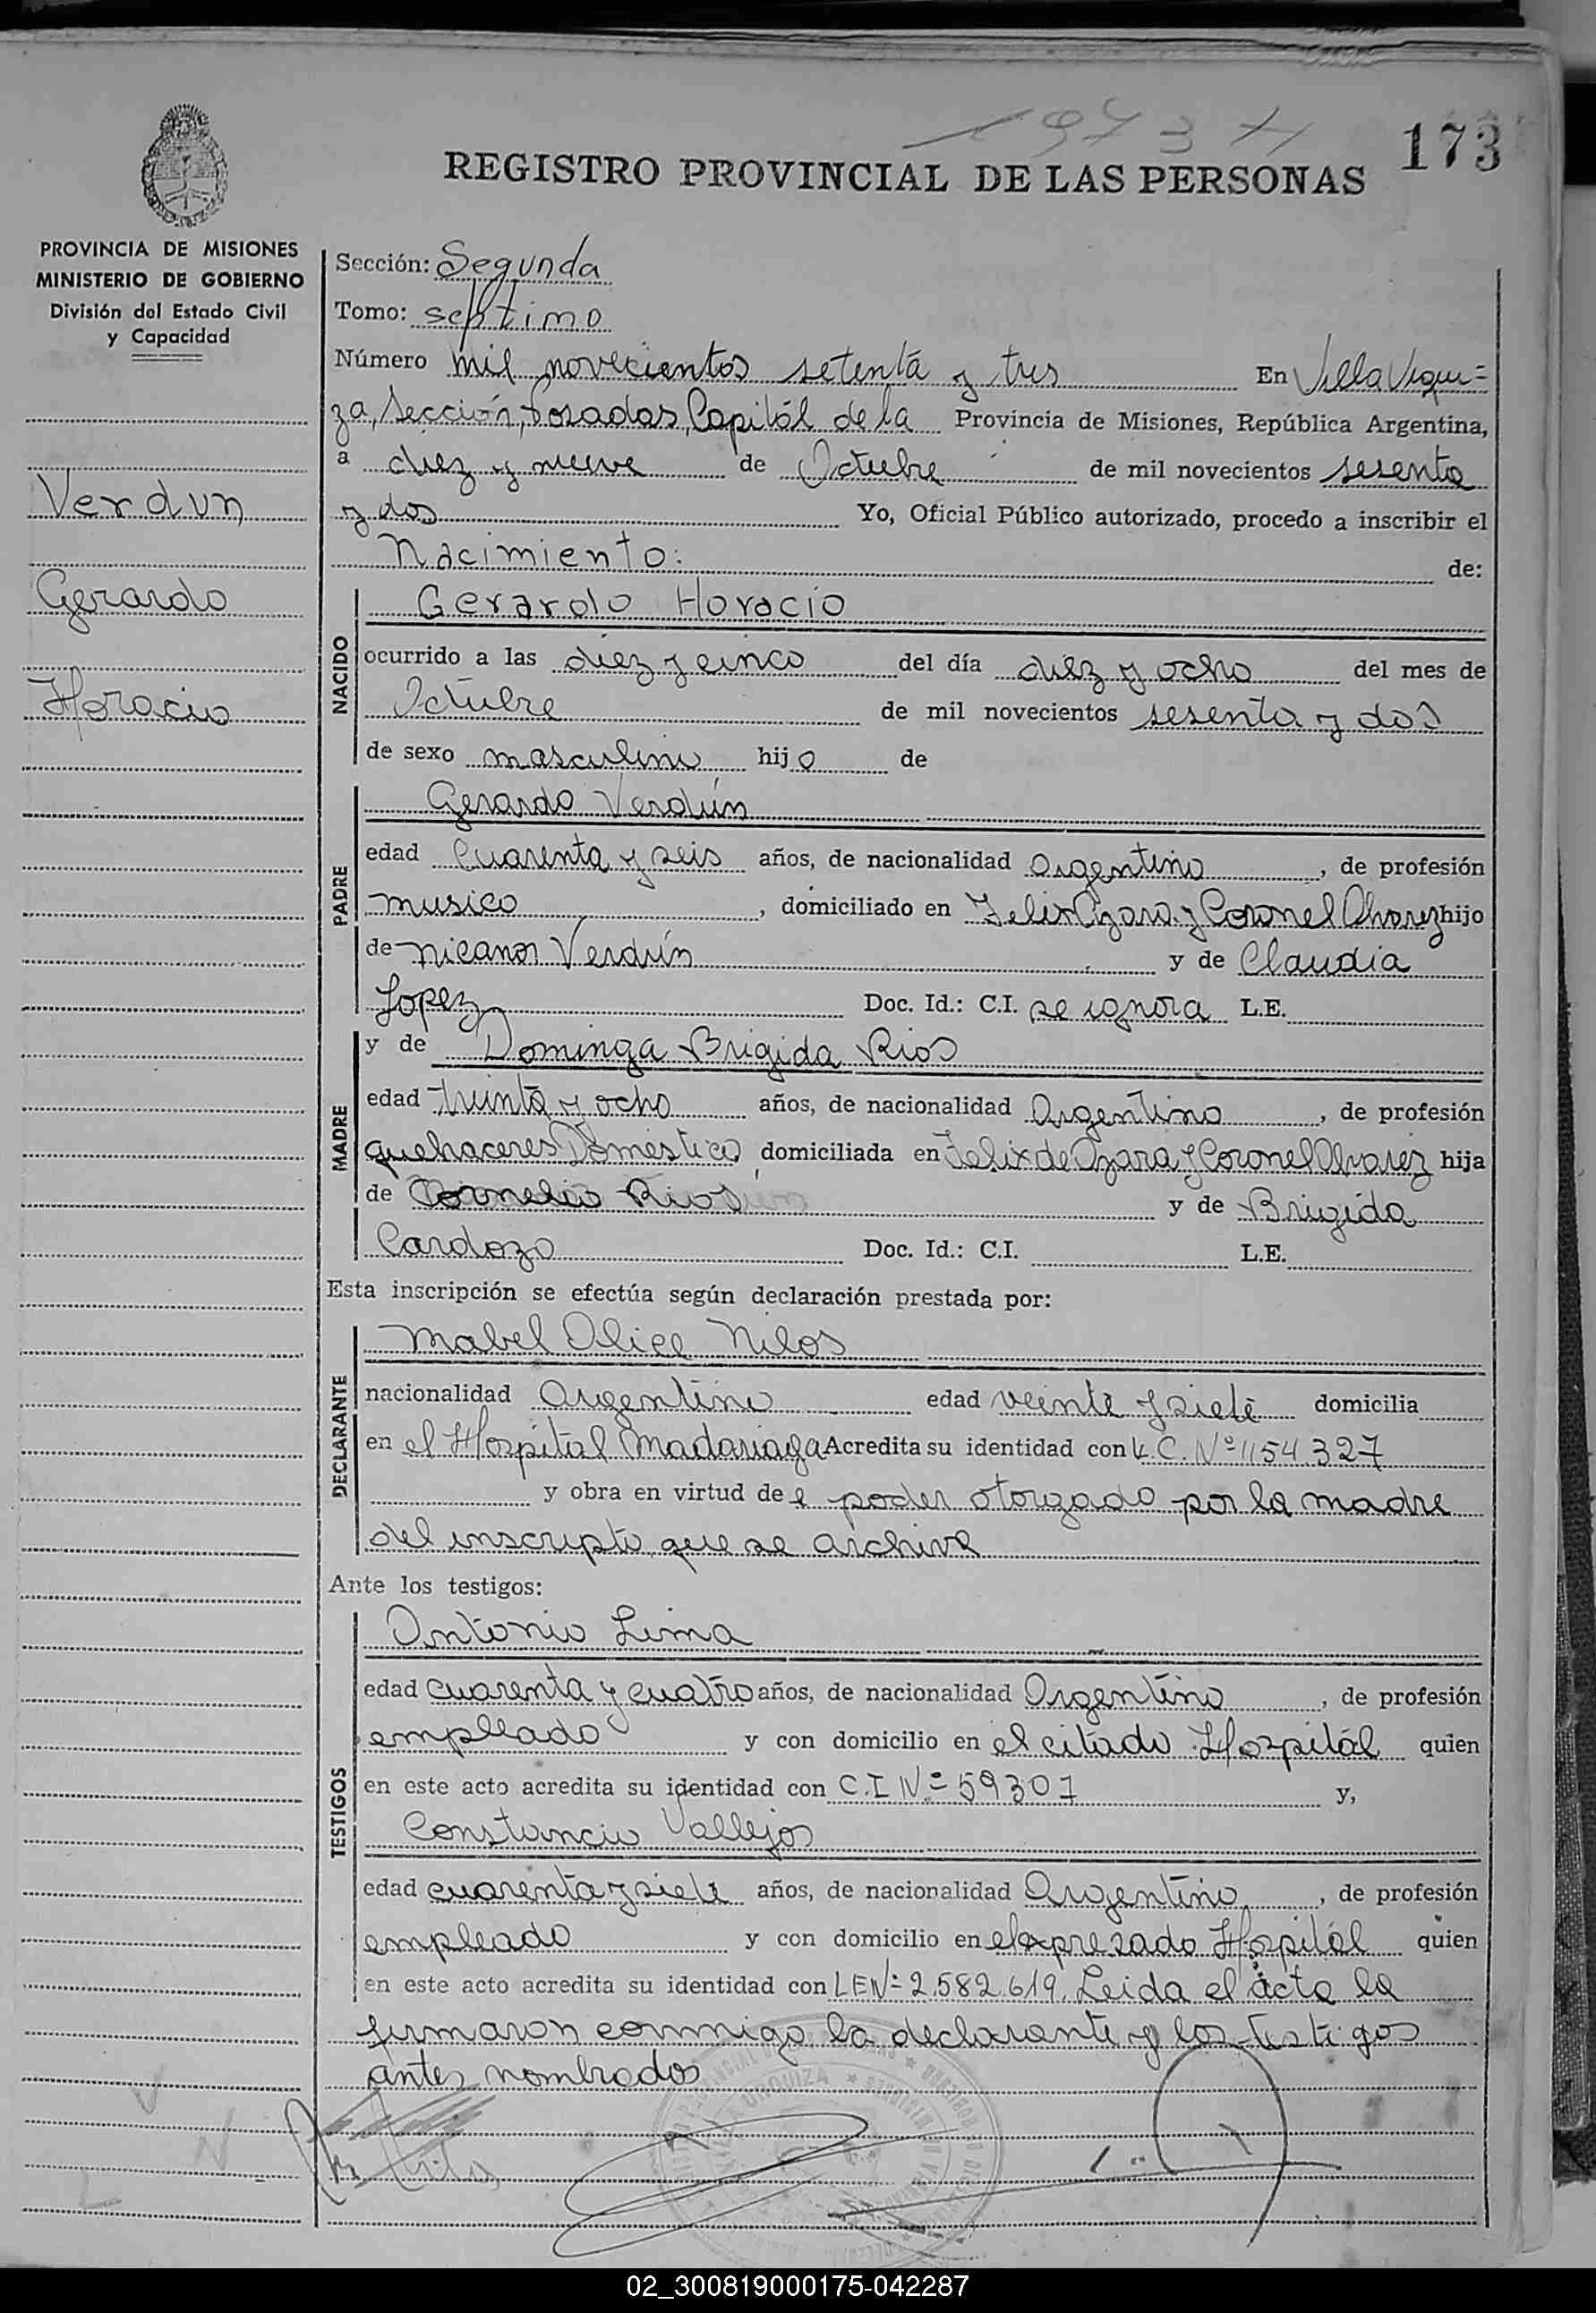 1973
173
REGISTRO PROVINCIAL DE LAS PERSONAS
PROVINCIA DE MISIONES
MINISTERIO DE GOBIERNO
División del Estado Civil
y Capacidad
Verdun
Gerardo
Horacio
Sección: Segunda
Tomo: septimo
Número mil novecientos setenta y tres En Villa Urqui=
za, Sección, Posadas, Capitál de la Provincia de Misiones, República Argentina,
a diez y nueve de Octubre de mil novecientos sesenta
y dos Yo, Oficial Público autorizado, procedo a inscribir el
Nacimiento: de:
NACIDO
Gerardo Horacio
ocurrido a las diez y cinco del día diez y ocho del mes de
Octubre de mil novecientos sesenta y dos
de sexo masculino hijo de
PADRE
Gerardo Verdún
edad Cuarenta y seis años, de nacionalidad Argentino, de profesión
musico, domiciliado en Felix Azara y Coronel Alvarez hijo
de Nicanor Verdún y de Claudia
Lopez Doc. Id.: C.I. se ignora L.E.
MADRE
y de Dominga Brigida Rios
edad treinta y ocho años, de nacionalidad Argentina, de profesión
quehaceres Domésticos domiciliada en Felix de Azara y Coronel Alvarez hija
de Cornelio Rios y de Brigida
Cardozo Doc. Id.: C.I. L.E.
Esta inscripción se efectúa según declaración prestada por:
DECLARANTE
Mabel Alice Nilos
nacionalidad Argentina edad veinte y siete domicilia
en el Hospital Madariaga Acredita su identidad con L.C. Nº 1154.327
y obra en virtud de e poder otorgado por la madre
del inscripto que se archiva
Ante los testigos:
TESTIGOS
Antonio Lima
edad cuarenta y cuatro años, de nacionalidad Argentino, de profesión
empleado y con domicilio en el citado Hospitál quien
en este acto acredita su identidad con C.I Nº 59307 y,
Constancio Vallejos
edad cuarenta y siete años, de nacionalidad Argentino, de profesión
empleado y con domicilio en el expresado Hospitál quien
en este acto acredita su identidad con LE Nº 2.582.619. Leida el acta la
firmaron conmigo la declarante y los testigos
antes nombrados
02_300819000175-042287